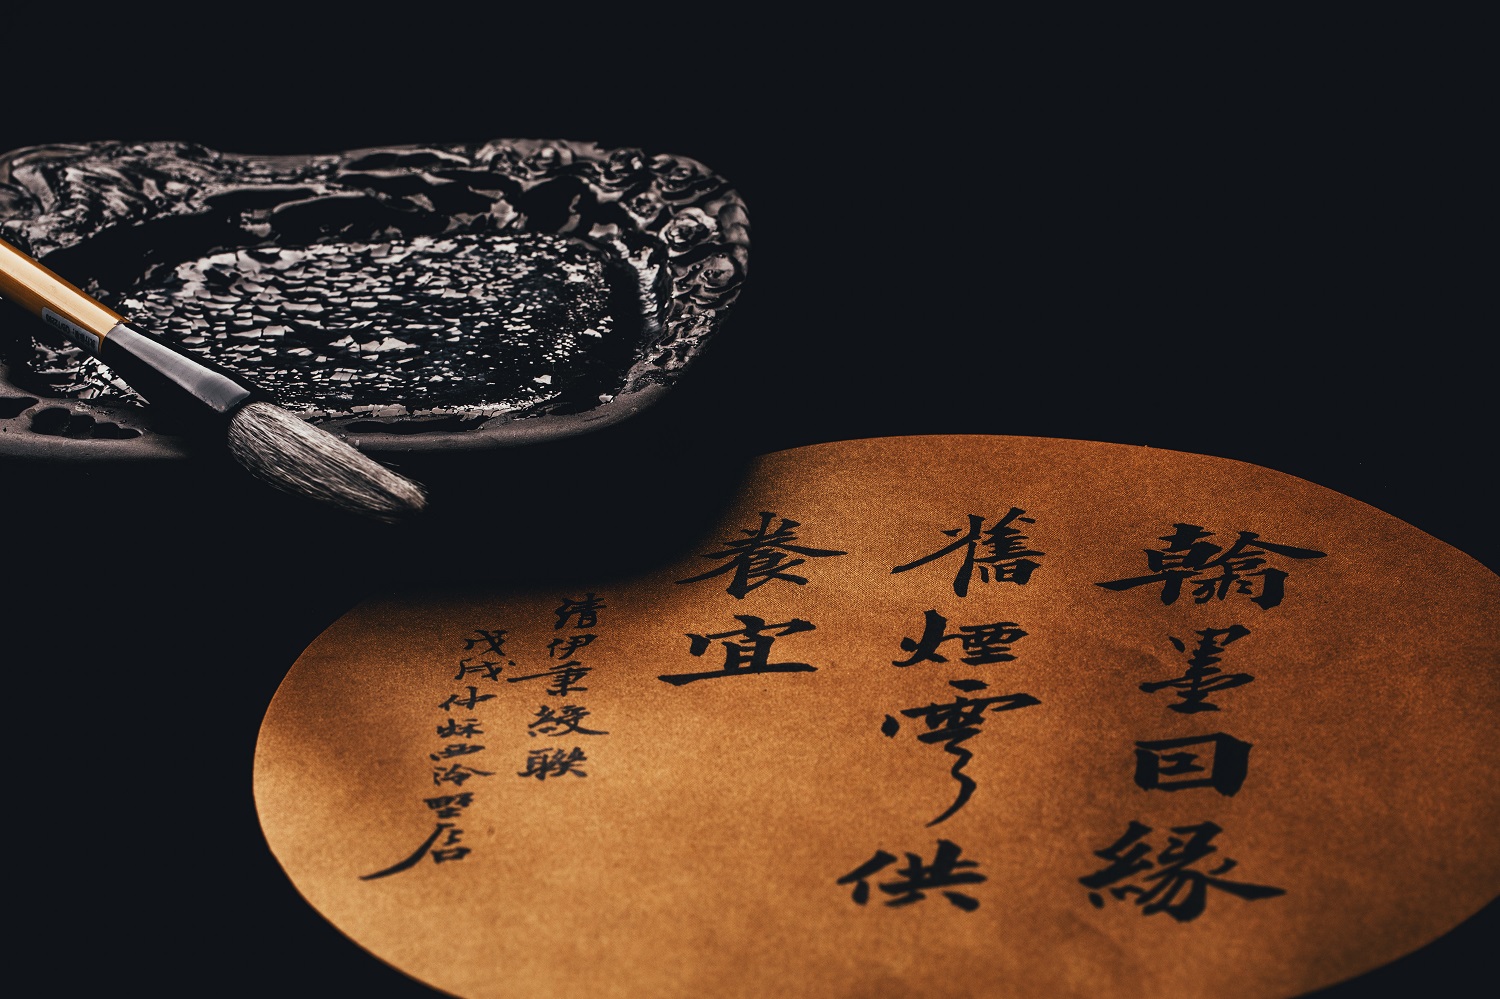 翰墨囙緣
舊煙雲供
養宜
清伊秉綬聯
戊戌仲秌西泠墅居